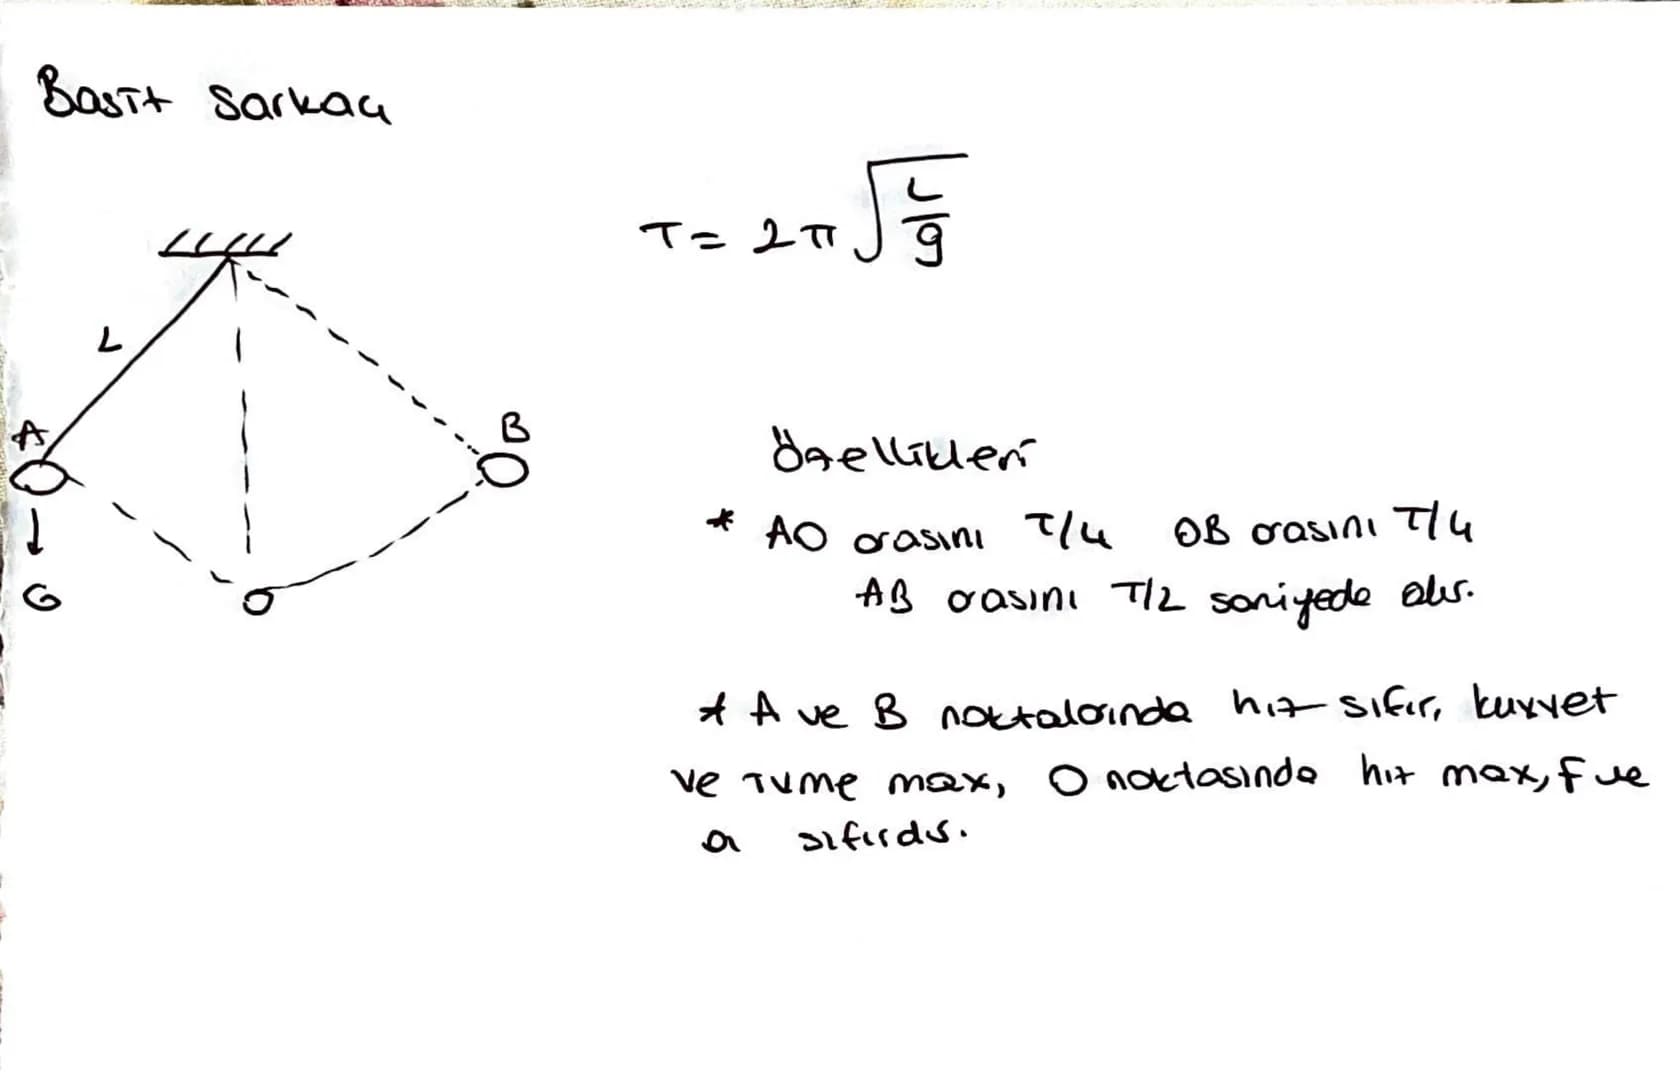 Basit Sarkaç
T = 2π √(L/g)
L
A
B
G
O
Özellikleri
* AO arasını T/4 OB arasını T/4
AB arasını T/2 saniyede alır.
* A ve B noktalarında hız sıfır, kuvvet
ve ivme max, O noktasında hız max, F ve
a sıfırdır.